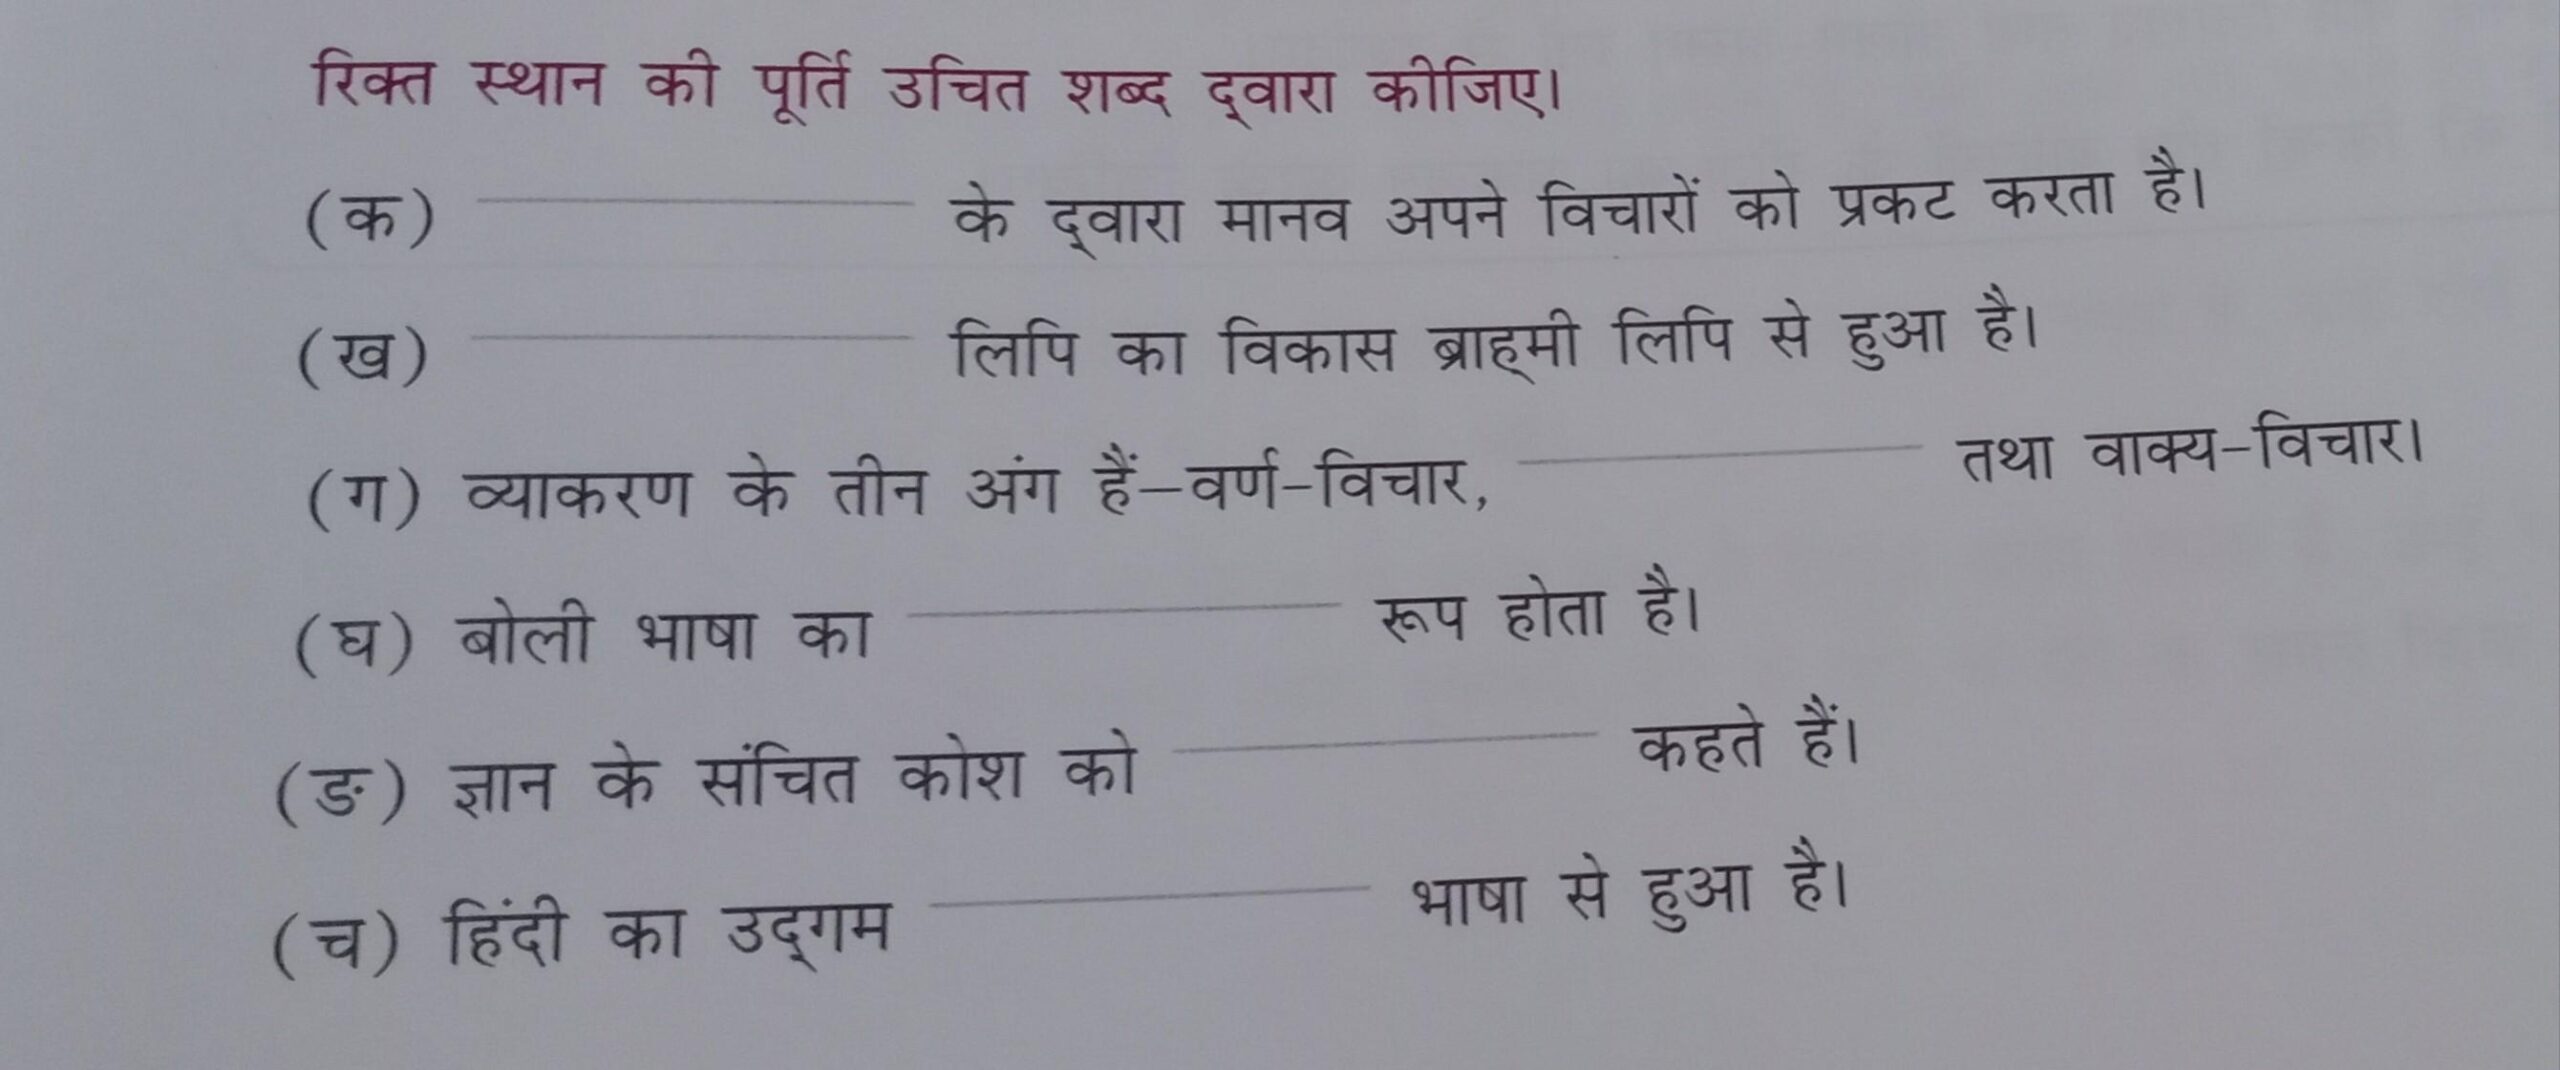 रिक्त स्थान की पूर्ति उचित शब्द द्‌वारा कीजिए।
(क) ____________ के द्‌वारा मानव अपने विचारों को प्रकट करता है।
(ख) ____________ लिपि का विकास ब्राह्‌मी लिपि से हुआ है।
(ग) व्याकरण के तीन अंग हैं–वर्ण-विचार, ____________ तथा वाक्य-विचार।
(घ) बोली भाषा का ____________ रूप होता है।
(ङ) ज्ञान के संचित कोश को ____________ कहते हैं।
(च) हिंदी का उद्‌गम ____________ भाषा से हुआ है।